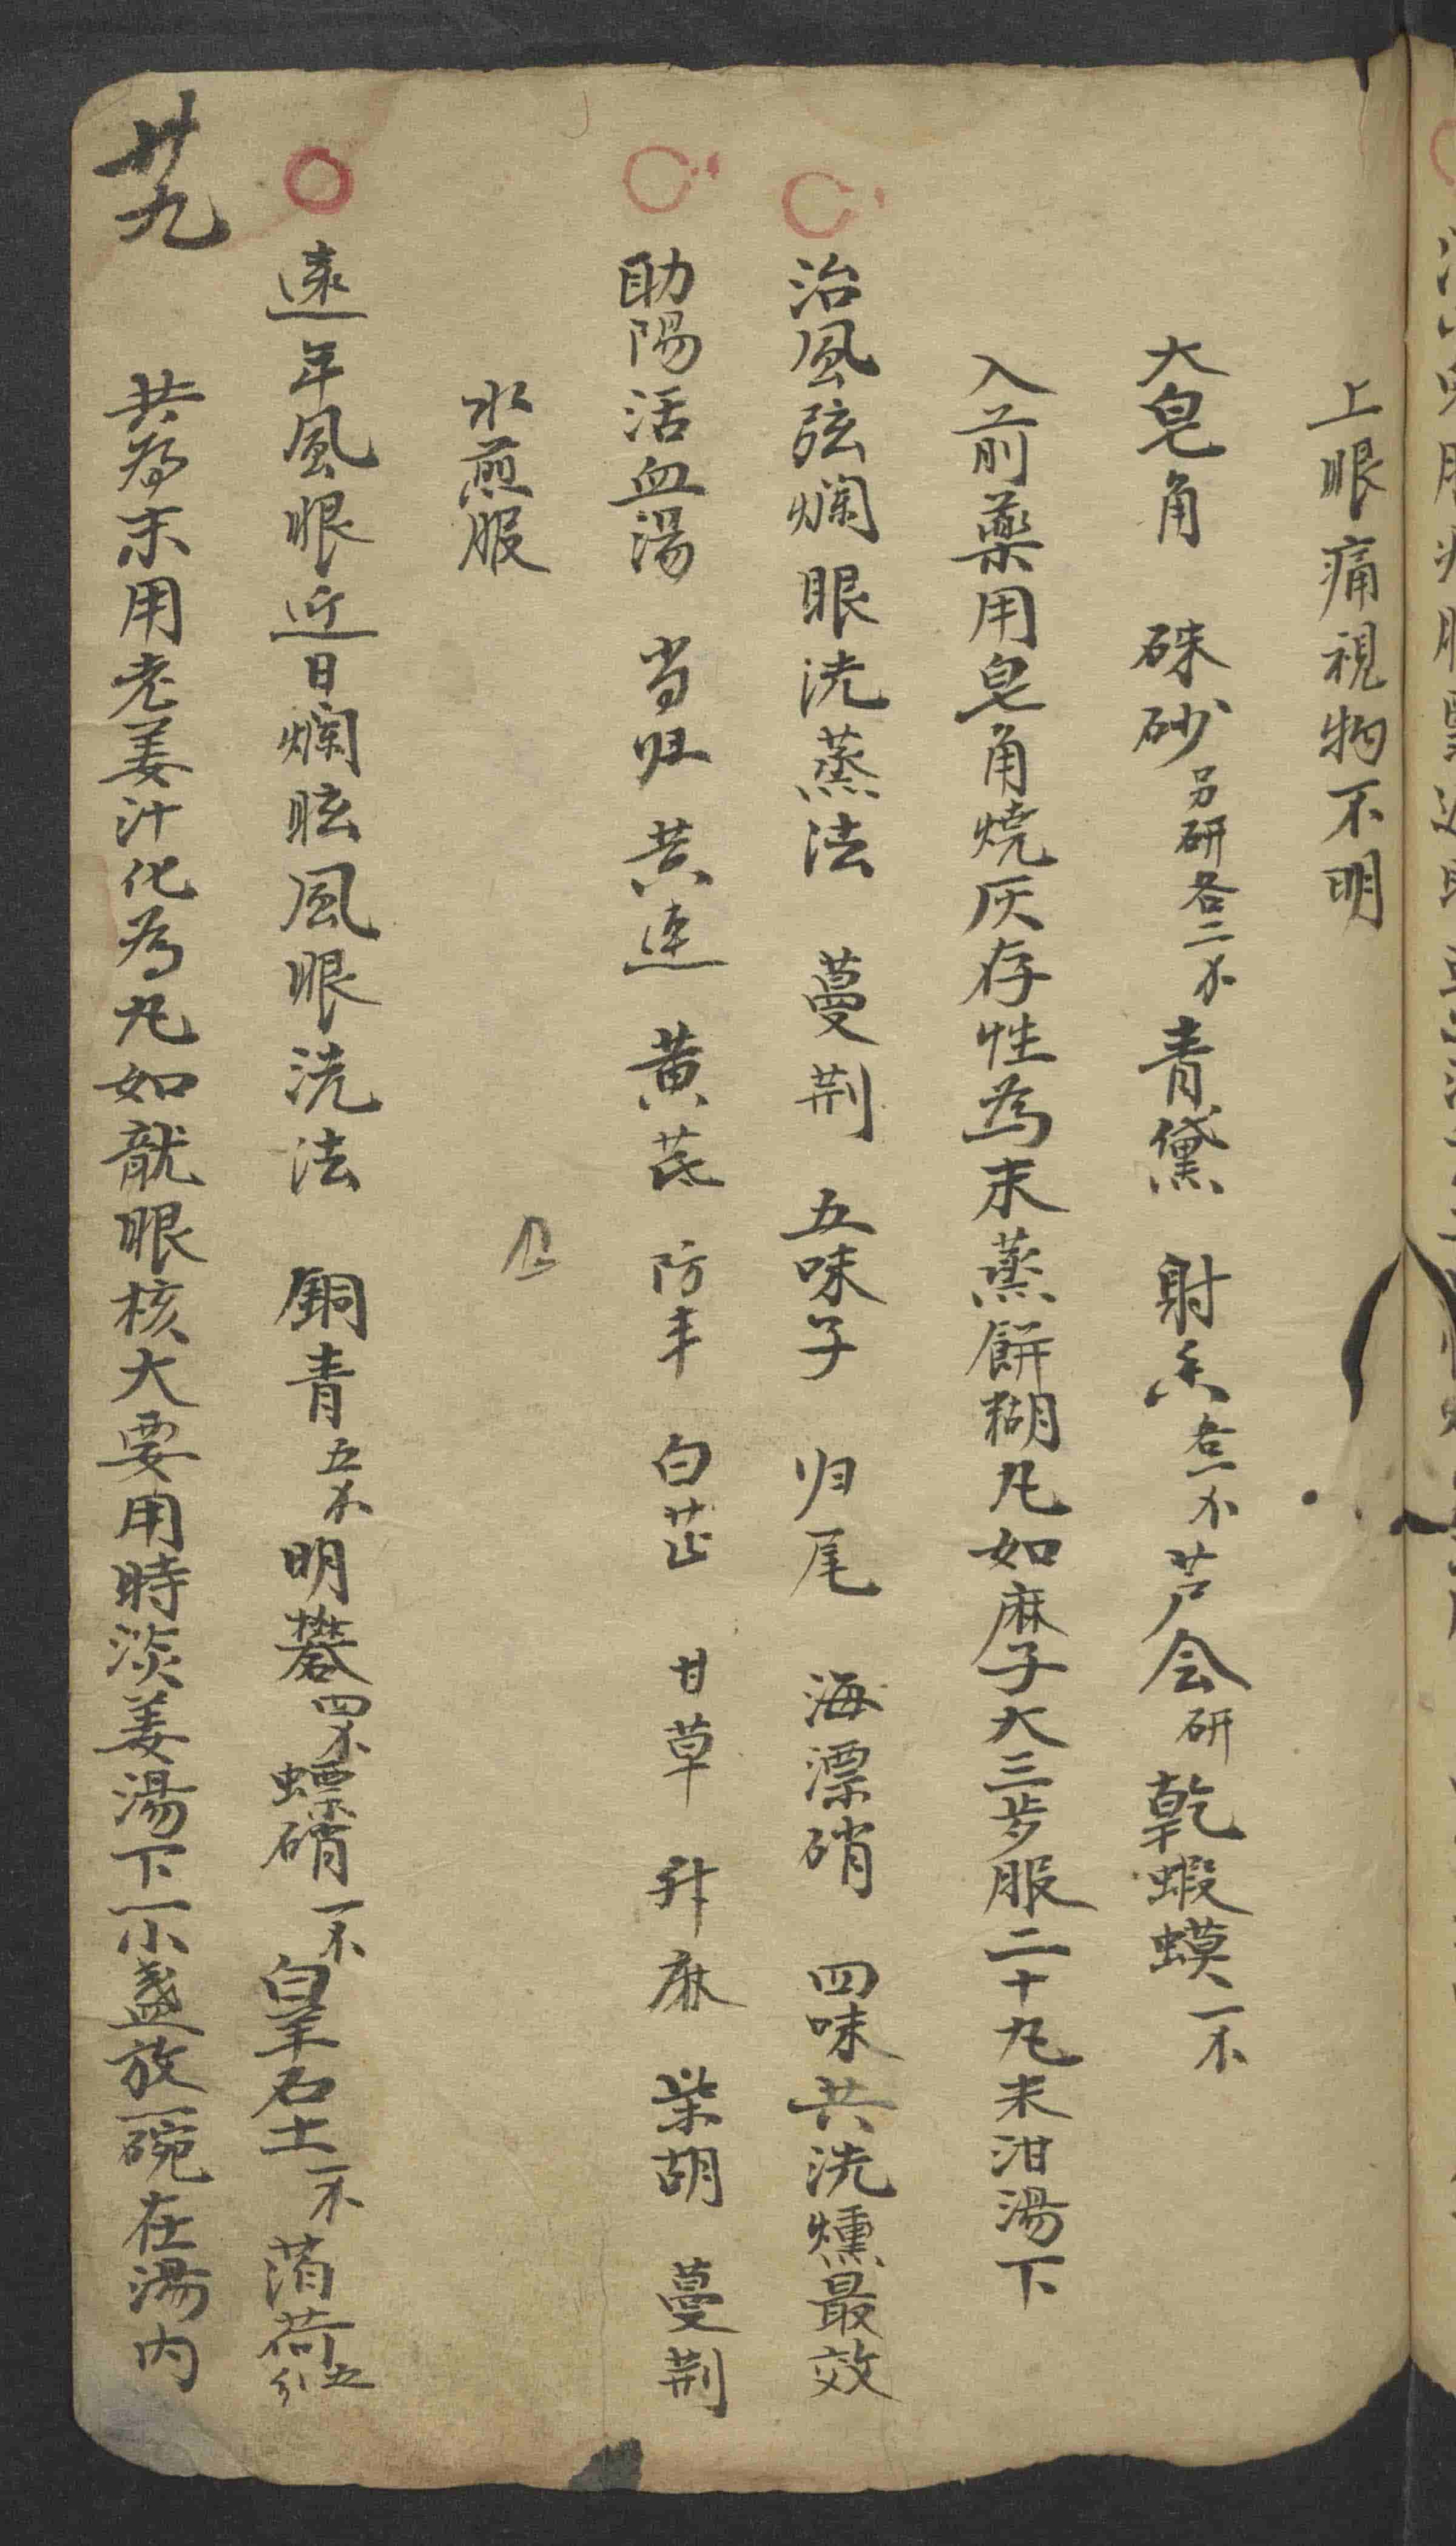 上眼痛視物不明
大皂角 硃砂另研各二朩青黛 射香各一朩芦会研乾蝦蟆一朩
入前藥用皂角燒灰存性為末蒸餅糊凡如麻子大三岁服二十九末泔湯下
治風弦爛眼洗蒸法 蔓荆 五味子 归尾 海漂硝 四味共洗燻最效
助陽活血湯 当归 黄連 黄芪 防丰 白芷 甘草 升麻 柴胡 蔓荆
水煎服
遠年風眼近日爛眩風眼洗法 銅青五朩明礬四朩螵硝一朩白羊石土一朩薄荷五分
共為末用老姜汁化為丸如龍眼核大要用時淡姜湯下一小盞放一碗在湯内
廿九